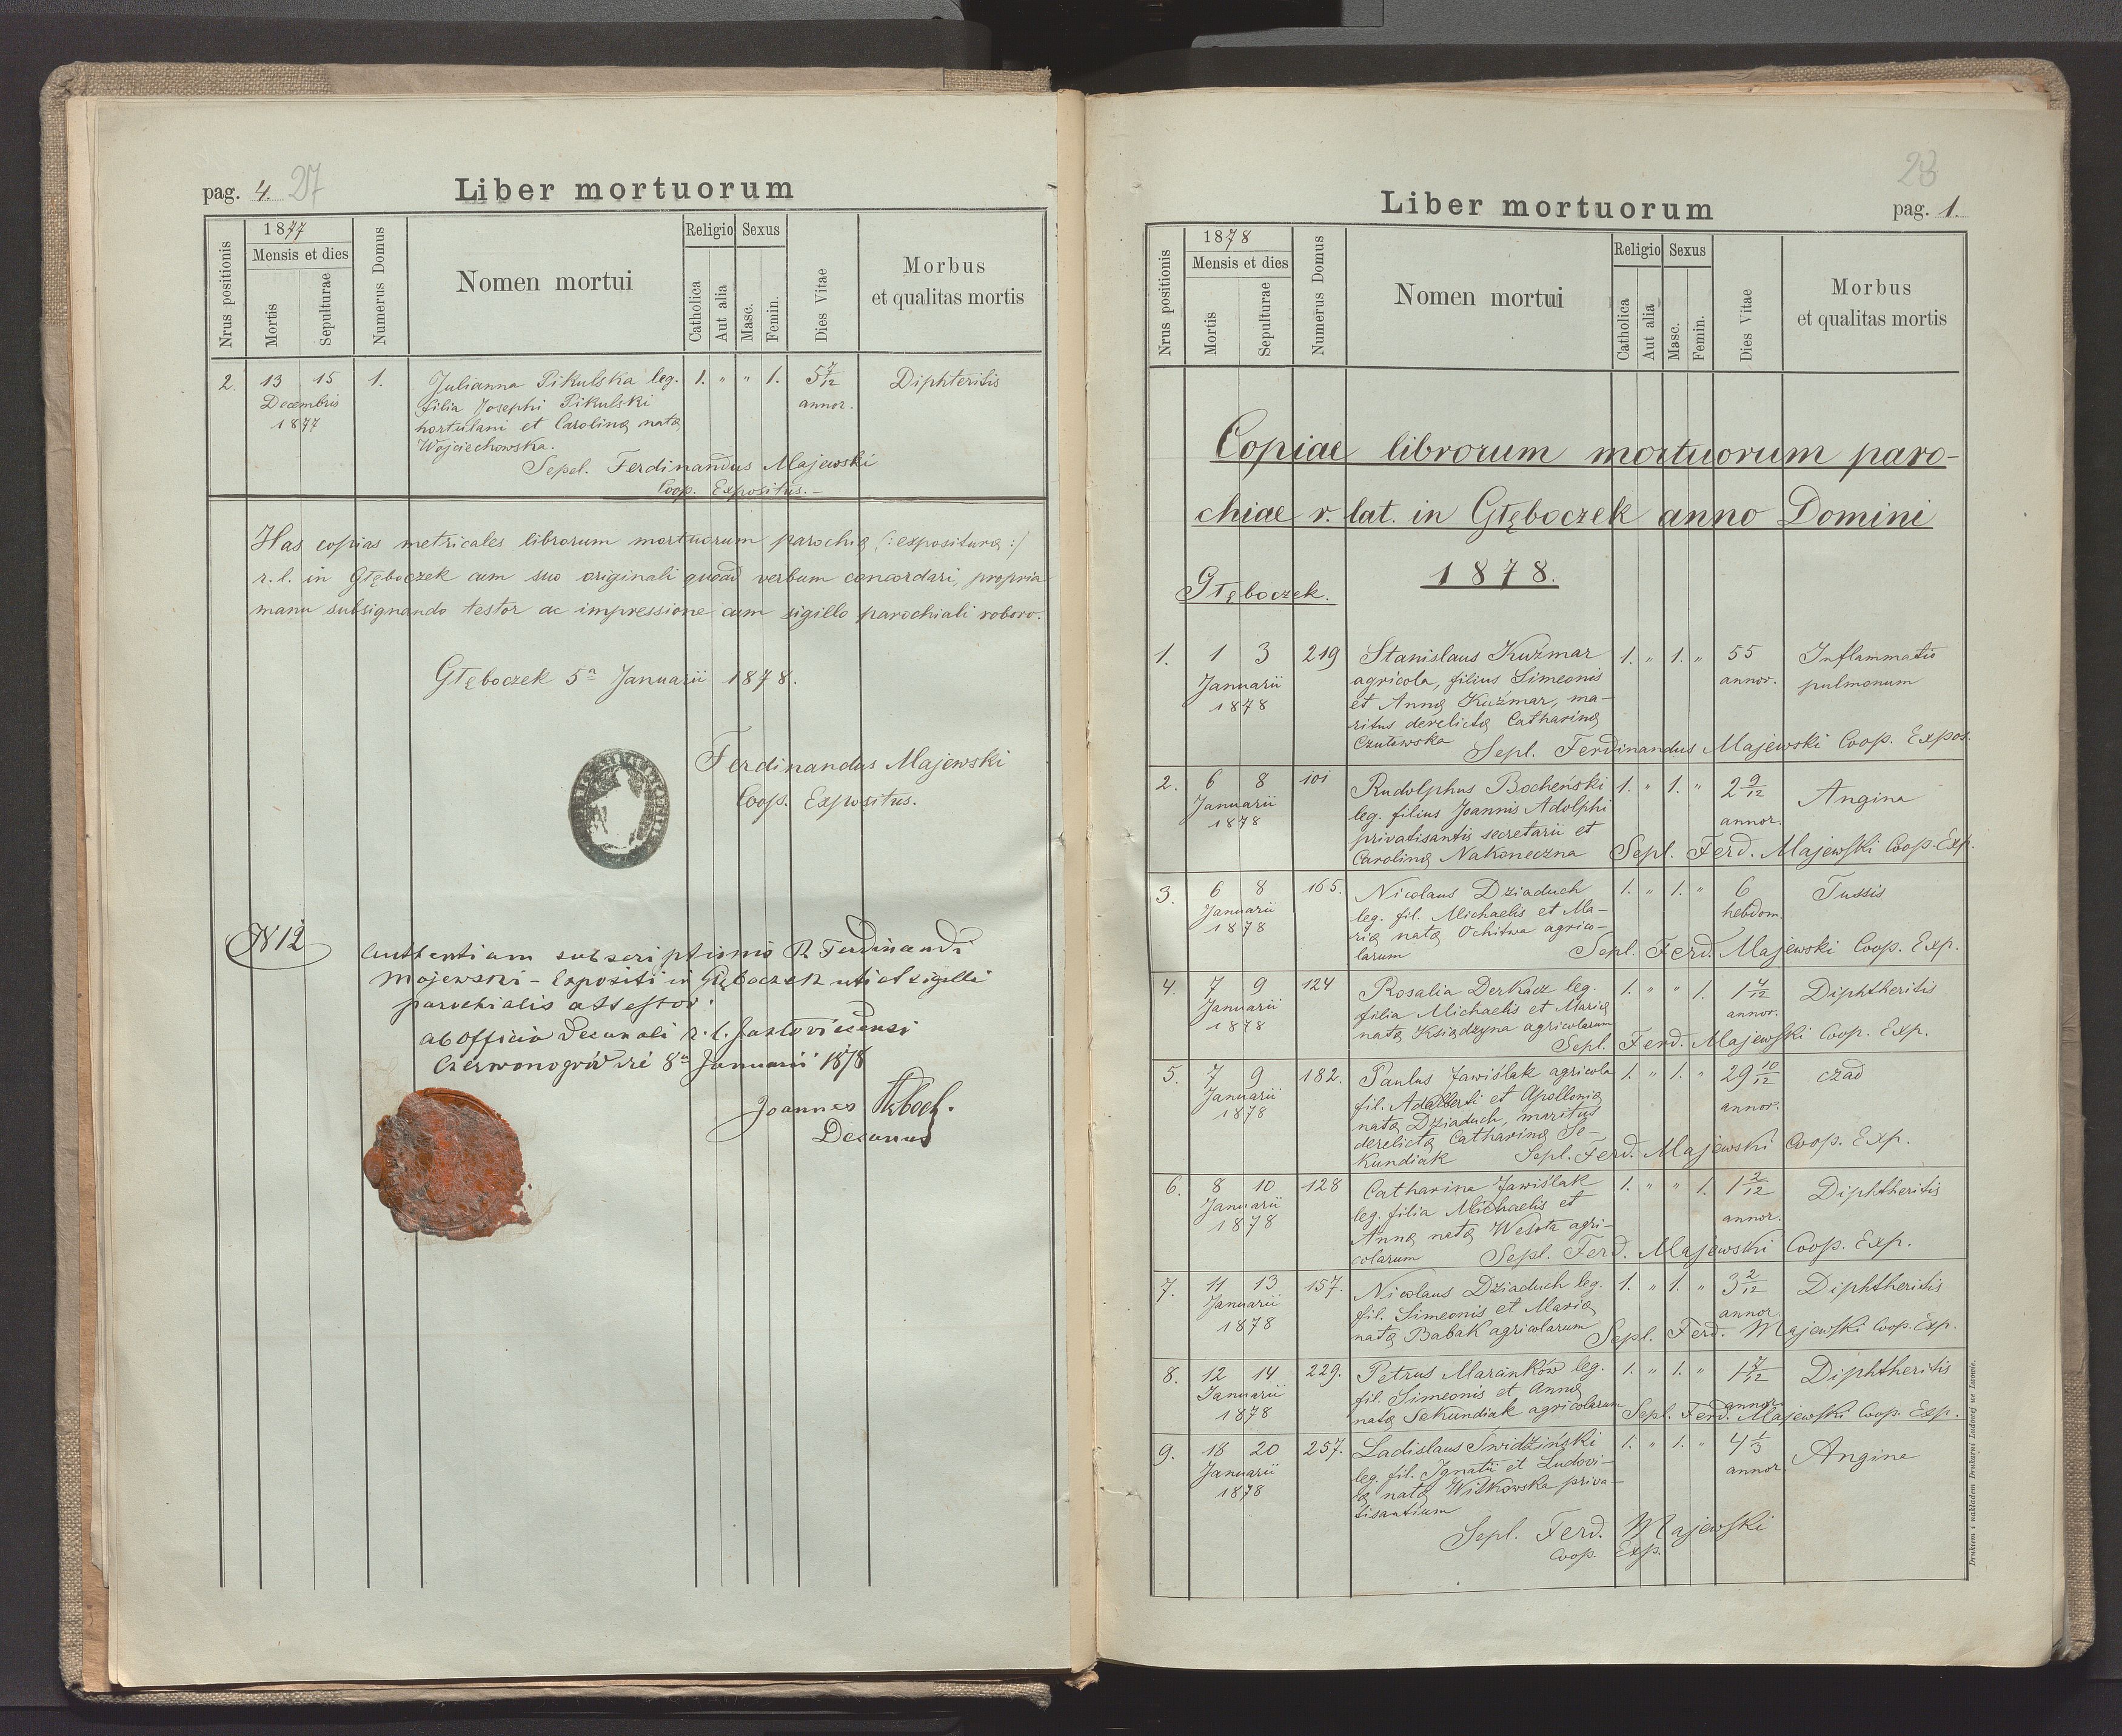 pag. 4. 27
Liber mortuorum
Nrus positionis
1877
Mensis et dies
Mortis
Sepulturae
Numerus Domus
Nomen mortui
Religio
Catholica
Aut alia
Sexus
Masc.
Femin.
Dies Vitae
Morbus
et qualitas mortis
2. 13 15 1. Julianna Pikulska leg. 1. " " 1. 5 7/12 Diphteritis
Decembris filia Josephi Pikulski annor.
1877 hortulani et Carolinę natę
Wojciechowska.
Sepel. Ferdinandus Majewski
Coop. Expositus.-
Has copias metricales librorum mortuorum parochię (: expositurę :)
r. l. in Głęboczek cum suo originali quoad verbum concordari, propria
manu subsignando testor ac impressione cum sigillo parochiali roboro.
Głęboczek 5a Januarii 1878.
Ferdinandus Majewski
Coop. Expositus.
N 12
subscriptionis R. Ferdinandi
Majewski - Expositi in Głęboczek uti et sigilli
parochialis attestor.
Ab officio Decanali r. l.
8a Januarii 1878
Joannes
Decanus
28
Liber mortuorum
pag. 1.
Nrus positionis
1878
Mensis et dies
Mortis
Sepulturae
Numerus Domus
Nomen mortui
Religio
Catholica
Aut alia
Sexus
Masc.
Femin.
Dies Vitae
Morbus
et qualitas mortis
Copiae librorum mortuorum paro-
chiae r. lat. in Głęboczek anno Domini
1878.
Głęboczek.
1. 1 3 219 Stanislaus Kuźmar 1. " 1. " 55 Inflammatio
Januarii agricola, filius Simeonis annor. pulmonum
1878 et Annę Kuźmar, ma-
ritus derelictę Catharinę
Czutewska Sepl. Ferdinandus Majewski Coop. Expos.
2. 6 8 101 Rudolphus Bocheński 1. " 1. " 2 9/12 Angina
Januarii leg. filius Joannis Adolphi annor.
1878 privatisantis secretarii et
Carolinę Nakoneczna Sepl. Ferd. Majewski Coop. Exp.
3. 6 8 165. Nicolaus Dziaduch 1. " 1. " 6 Tussis
Januarii leg. fil. Michaelis et Ma- hebdom.
1878 rię natę Ochitwa agrico-
larum Sepl. Ferd. Majewski Coop. Exp.
4. 7 9 124 Rosalia Derkacz leg. 1. " " 1. 1 4/12 Diphtheritis
Januarii filia Michaelis et Marię annor.
1878 natę Ksiądzyna agricolarum
Sepl. Ferd. Majewski Coop. Exp.
5. 7 9 182. Paulus Jawiślak agricola 1. " 1. " 29 10/12 czad
Januarii fil. Adalberti et Apollonię annor.
1878 natę Dziaduch, maritus
derelictę Catharinę Se-
kundiak Sepl. Ferd. Majewski Coop. Exp.
6. 8 10 128 Catharina Jawiślak 1. " " 1. 1 2/12 Diphtheritis
Januarii leg. filia Michaelis et annor.
1878 Annę natę Wesota agri-
colarum Sepl. Ferd. Majewski Coop. Exp.
7. 11 13 157. Nicolaus Dziaduch leg. 1. " 1. " 3 2/12 Diphtheritis
Januarii fil. Simeonis et Marię annor.
1878 natę Babak agricolarum Sepl. Ferd. Majewski Coop. Exp.
8. 12 14 229. Petrus Maranków leg. 1. " 1. " 1 7/12 Diphtheritis
Januarii fil. Simeonis et Annę annor.
1878 natę Sekundiak agricolarum Sepl. Ferd. Majewski Coop. Exp.
9. 18 20 257. Ladislaus Świdziński 1. " 1. " 4 1/3 Angina
Januarii leg. fil. Ignatii et Ludovi- annor.
1878 cę natę Witkowska priva-
tisantium
Sepl. Ferd. Majewski
Coop. Exp.
Drukiem i nakładem Drukarni Ludowej we Lwowie.